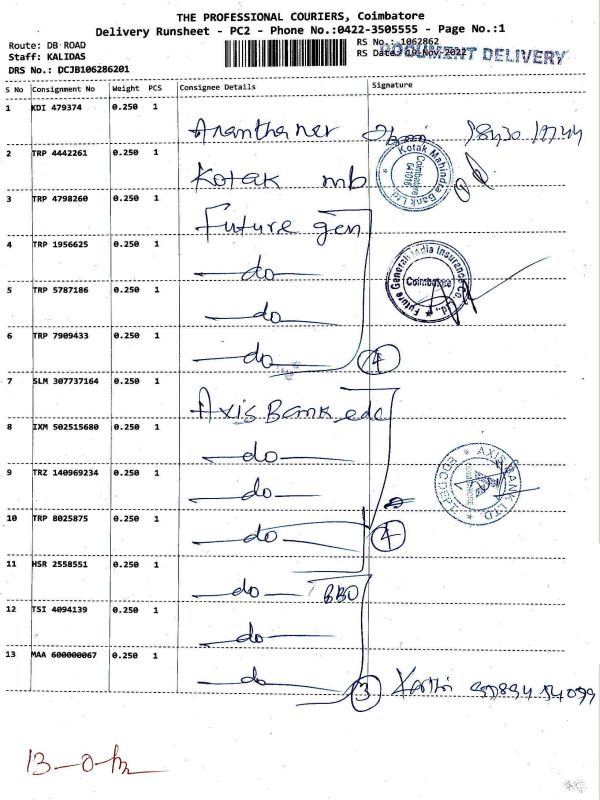 THE PROFESSIONAL COURIERS, Coimbatore
Delivery Runsheet - PC2 - Phone No.:0422-3505555 - Page No.:1
Route: DB ROAD
Staff: KALIDAS
DRS No.: DCJB106286201
RS No.: 1062862
RS Date: 19-Nov-2022
DOCUMENT DELIVERY
S No Consignment No Weight PCS Consignee Details Signature
1 KDI 479374 0.250 1
2 TRP 4442261 0.250 1 Kotak mb
Kotak Mahindra Bank Ltd. Coimbatore 641018
3 TRP 4798260 0.250 1 Future gen
4 TRP 1956625 0.250 1 do
Future Generali India Insurance Co. Ltd., Coimbatore
5 TRP 5787186 0.250 1 do
6 TRP 7909433 0.250 1 do 4
7 SLM 307737164 0.250 1 Axis Bank edc
8 IXM 502515680 0.250 1 do
9 TRZ 140969234 0.250 1 do
AXIS BANK LTD. EDC DEPT.
10 TRP 8025875 0.250 1 do 4
11 HSR 2558551 0.250 1 do BBO
12 TSI 4094139 0.250 1 do
13 MAA 600000067 0.250 1 do 3